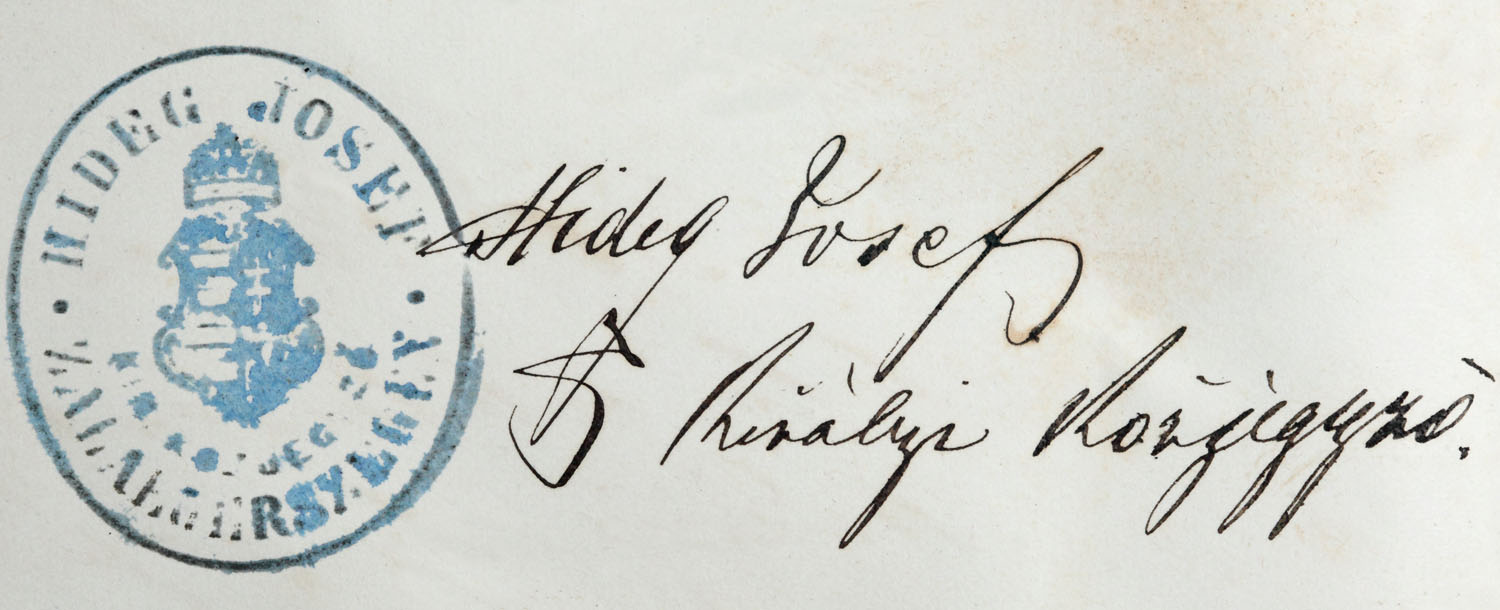 HIDEG JOSEF
KIR. KÖZJEGYZŐ
ZALAEGERSZEGEN
Hideg Josef
Királyi Közjegyző.